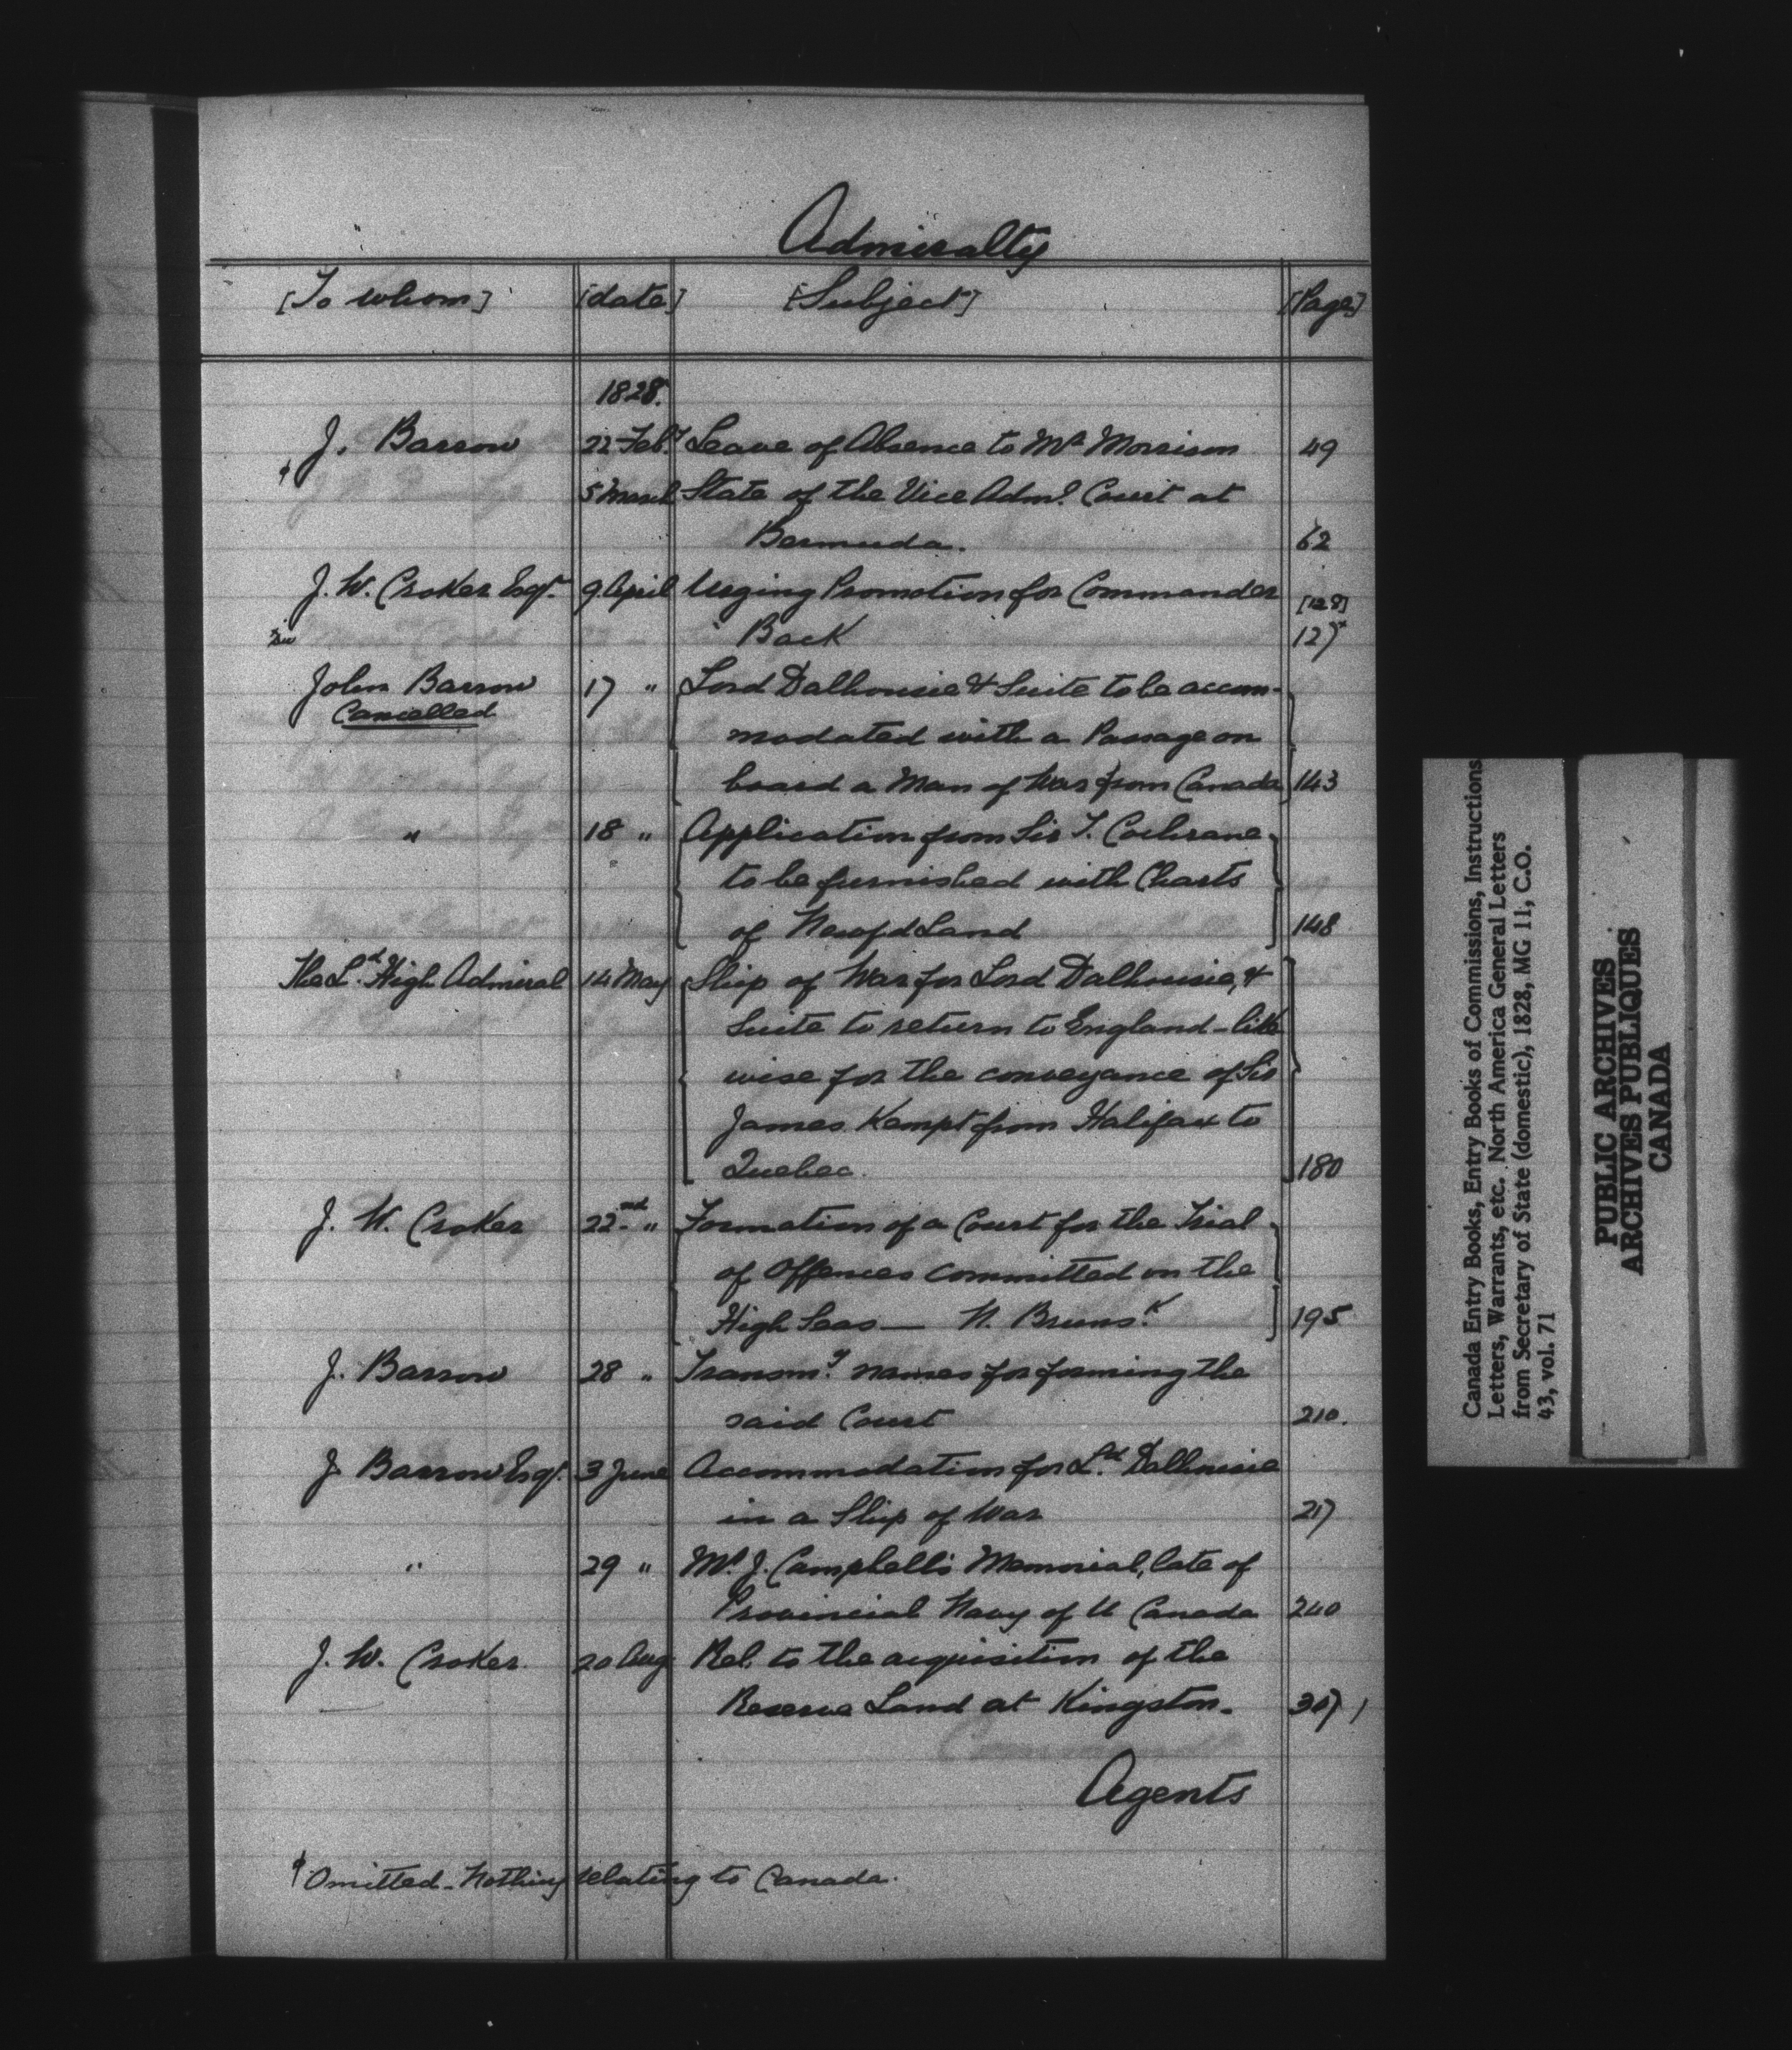 Admiralty
[To whom] [date] [Subject] [Page]
1828.
J. Barrow 22 Feby Leave of Absence to Mr Morrison 49
φ 5 March State of the Vice Adml. Court at
Bermuda. 62
J. W. Croker Esqr. 9 April Urging Promotion for Commander [128]
*sic Back 127*
John Barrow 17 " Lord Dalhousie & Suite to be accom-
Cancelled modated with a Passage on
board a Man of War from Canada 143
" 18 " Application from Sir T. Cochrane
to be furnished with Charts
of NewfdLand 148
The Ld. High Admiral 14 May Ship of War for Lord Dalhousie, &
Suite to return to England - like
wise for the conveyance of Sir
James Kempt from Halifax to
Quebec. 180
J. W. Croker 22nd " Formation of a Court for the Trial
of Offences committed on the
High Seas — N. Brunsk. 195
J. Barrow 28 " Transmg. names for forming the
said Court 210.
J Barrow Esqr. 3 June Accommodation for Ld. Dalhousie
in a Ship of War 217
" 29 " Mr. J. Campbell's Memorial, late of
Provincial Navy of U Canada 240
J. W. Croker. 20 Aug. Rel. to the acquisition of the
Reserve Land at Kingston. 307
Agents
φ Omitted - Nothing relating to Canada.
Canada Entry Books, Entry Books of Commissions, Instructions
Letters, Warrants, etc. North America General Letters
from Secretary of State (domestic), 1828, MG 11, C.O.
43, vol. 71
PUBLIC ARCHIVES
ARCHIVES PUBLIQUES
CANADA